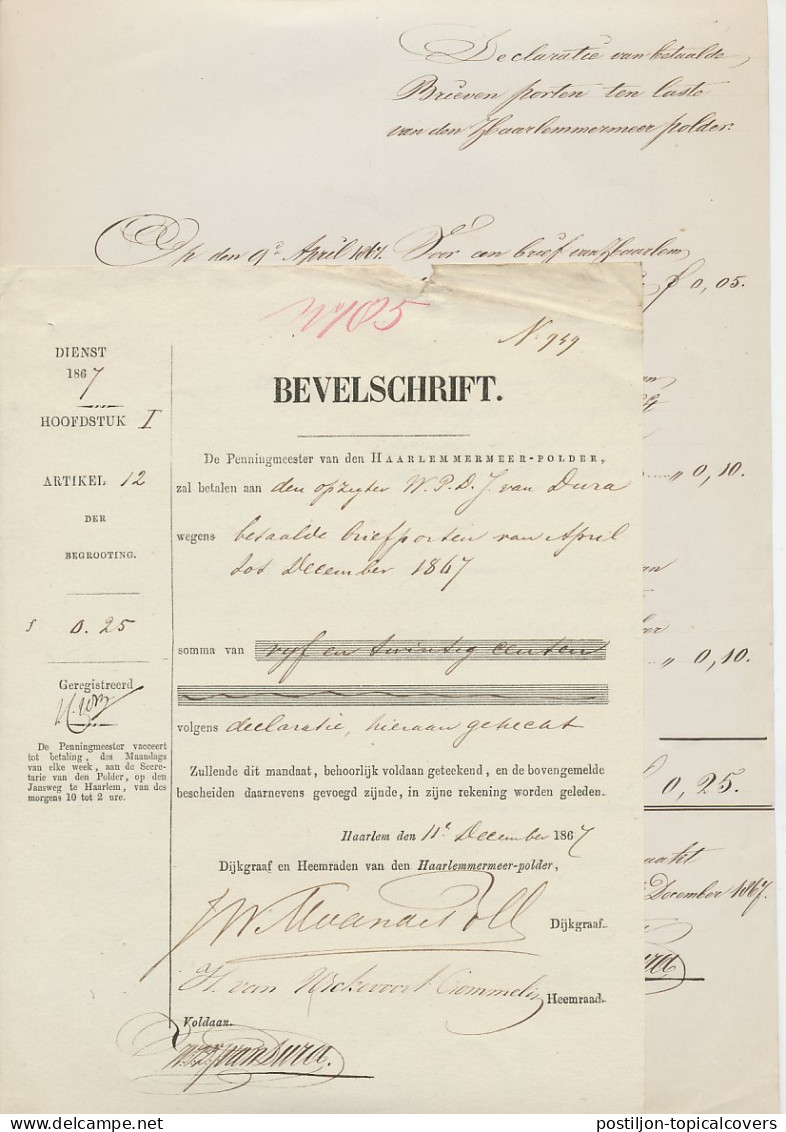 Declaratie van betaalde
Brieven porten ten laste
van den Haarlemmermeer polder.
Op den 9e April 1867. Voor een brief van Haarlem
f 0,05.
No 105
No. 949
DIENST
1867
HOOFDSTUK I
ARTIKEL 12
DER
BEGROOTING.
f 0.25
Geregistreerd
De Penningmeester vacceert
tot betaling, des Maandags
van elke week, aan de Secre-
tarie van den Polder, op den
Jansweg te Haarlem, van des
morgens 10 tot 2 ure.
BEVELSCHRIFT.
De Penningmeester van den HAARLEMMERMEER-POLDER,
zal betalen aan den opzigter W.P.D.J. van Dura
wegens betaalde briefporten van April
tot December 1867
somma van vijf en twintig centen
volgens declaratie, hieraan gehecht
Zullende dit mandaat, behoorlijk voldaan geteekend, en de bovengemelde
bescheiden daarnevens gevoegd zijnde, in zijne rekening worden geleden.
Haarlem den 11e December 1867
Dijkgraaf en Heemraden van den Haarlemmermeer-polder,
Dijkgraaf.
H. van Wickevoort Crommelin Heemraad.
Voldaan.
van Dura.
„ 0,10.
„ 0,10.
0,25.
December 1867.
postiljon-topicalcovers